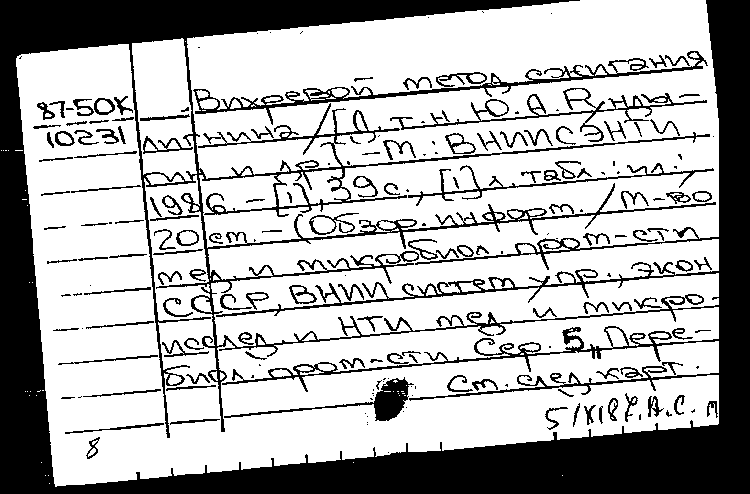 87-50К Вихревой метод сжигания
10231 лигнина / [Д.т.н. Ю.А. Рунды-
гин и др.]. - М.: ВНИИСЭНТИ,
1986. - [1], 39 с., [1] л. табл.: ил.;
20 см. - (Обзор. информ. / М-во
мед. и микробиол. пром-сти
СССР, ВНИИ систем упр., экон
исслед. и НТИ мед. и микро-
биол. пром-сти. Сер. 5, „Пере-
См. след. карт.
5/XI87. А.С. м
8